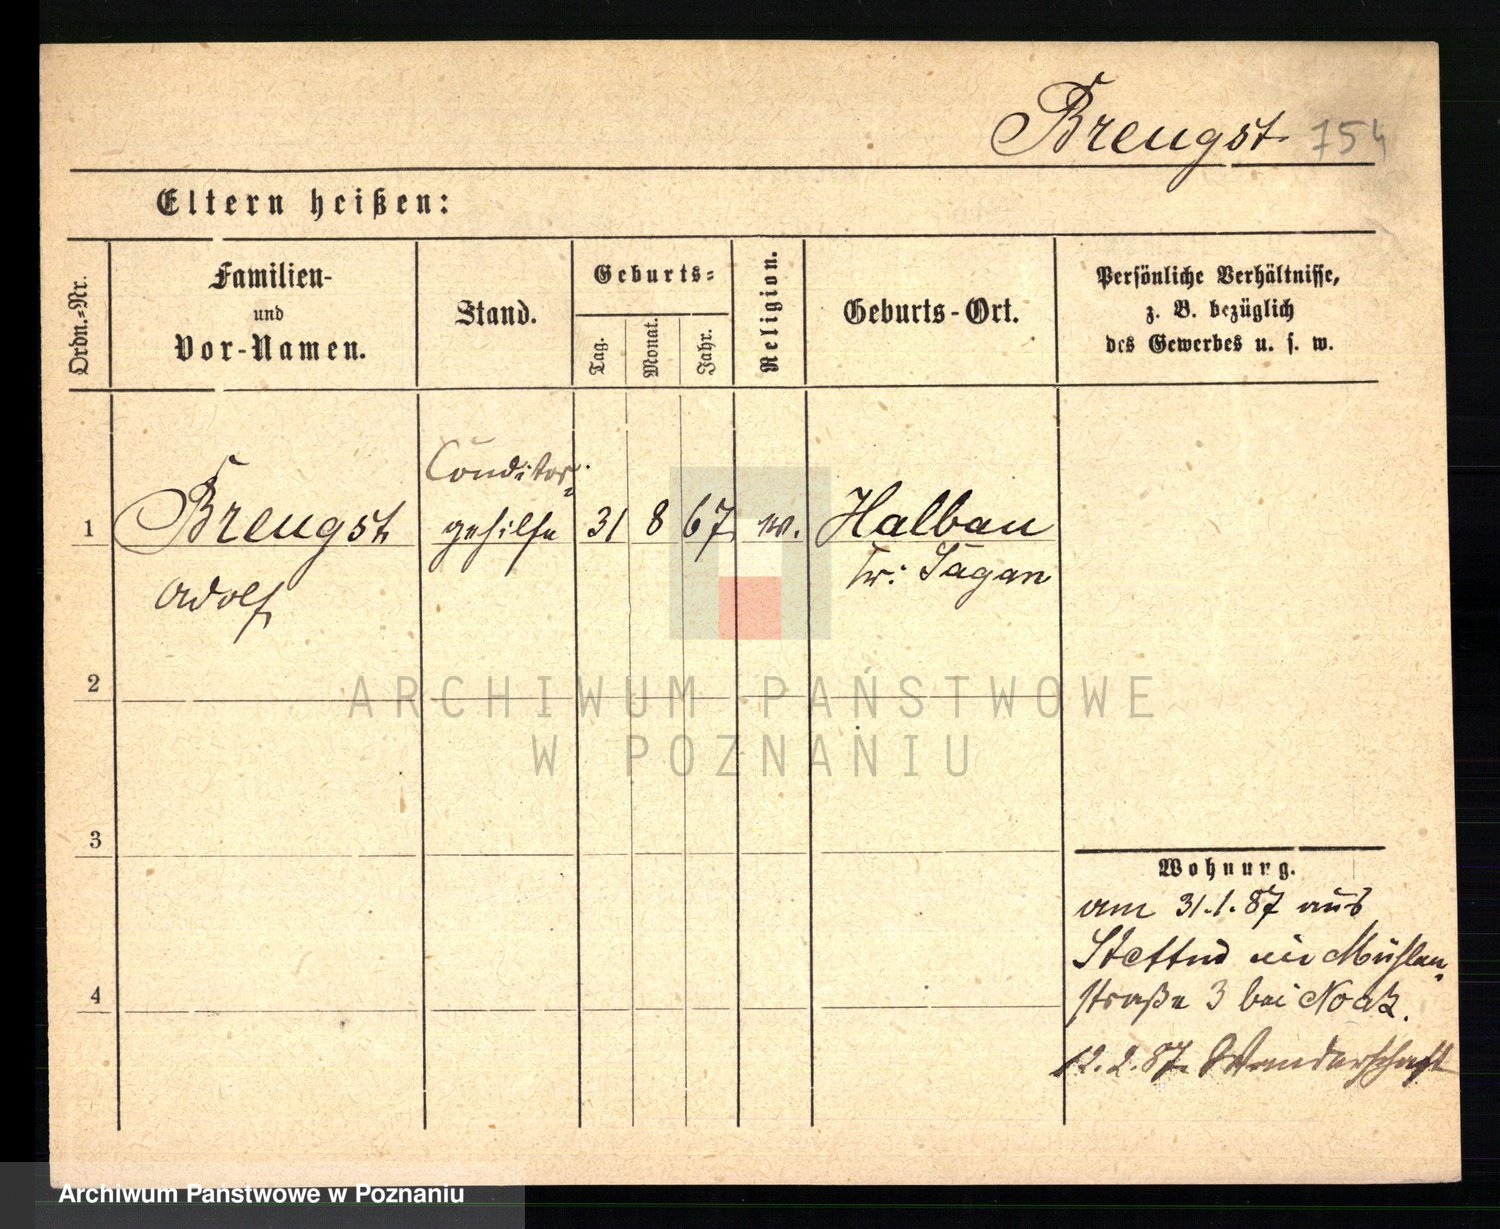 Brengst 754
Eltern heißen:
Ordn.-Nr.
Familien-
und
Vor-Namen.
Stand.
Geburts-
Tag.
Monat.
Jahr.
Religion.
Geburts-Ort.
Persönliche Verhältnisse,
z. B. bezüglich
des Gewerbes u. s. w.
1
Brengst
Adolf
Conditor-
gehilfe
31 8 67
Halbau
Kr: Sagan
2
3
4
ARCHIWUM PAŃSTWOWE
W POZNANIU
Wohnung.
am 31.1.87 aus
Stettin in Mühlen-
straße 3 bei Noak.
12.2.87. Wanderschaft
Archiwum Państwowe w Poznaniu